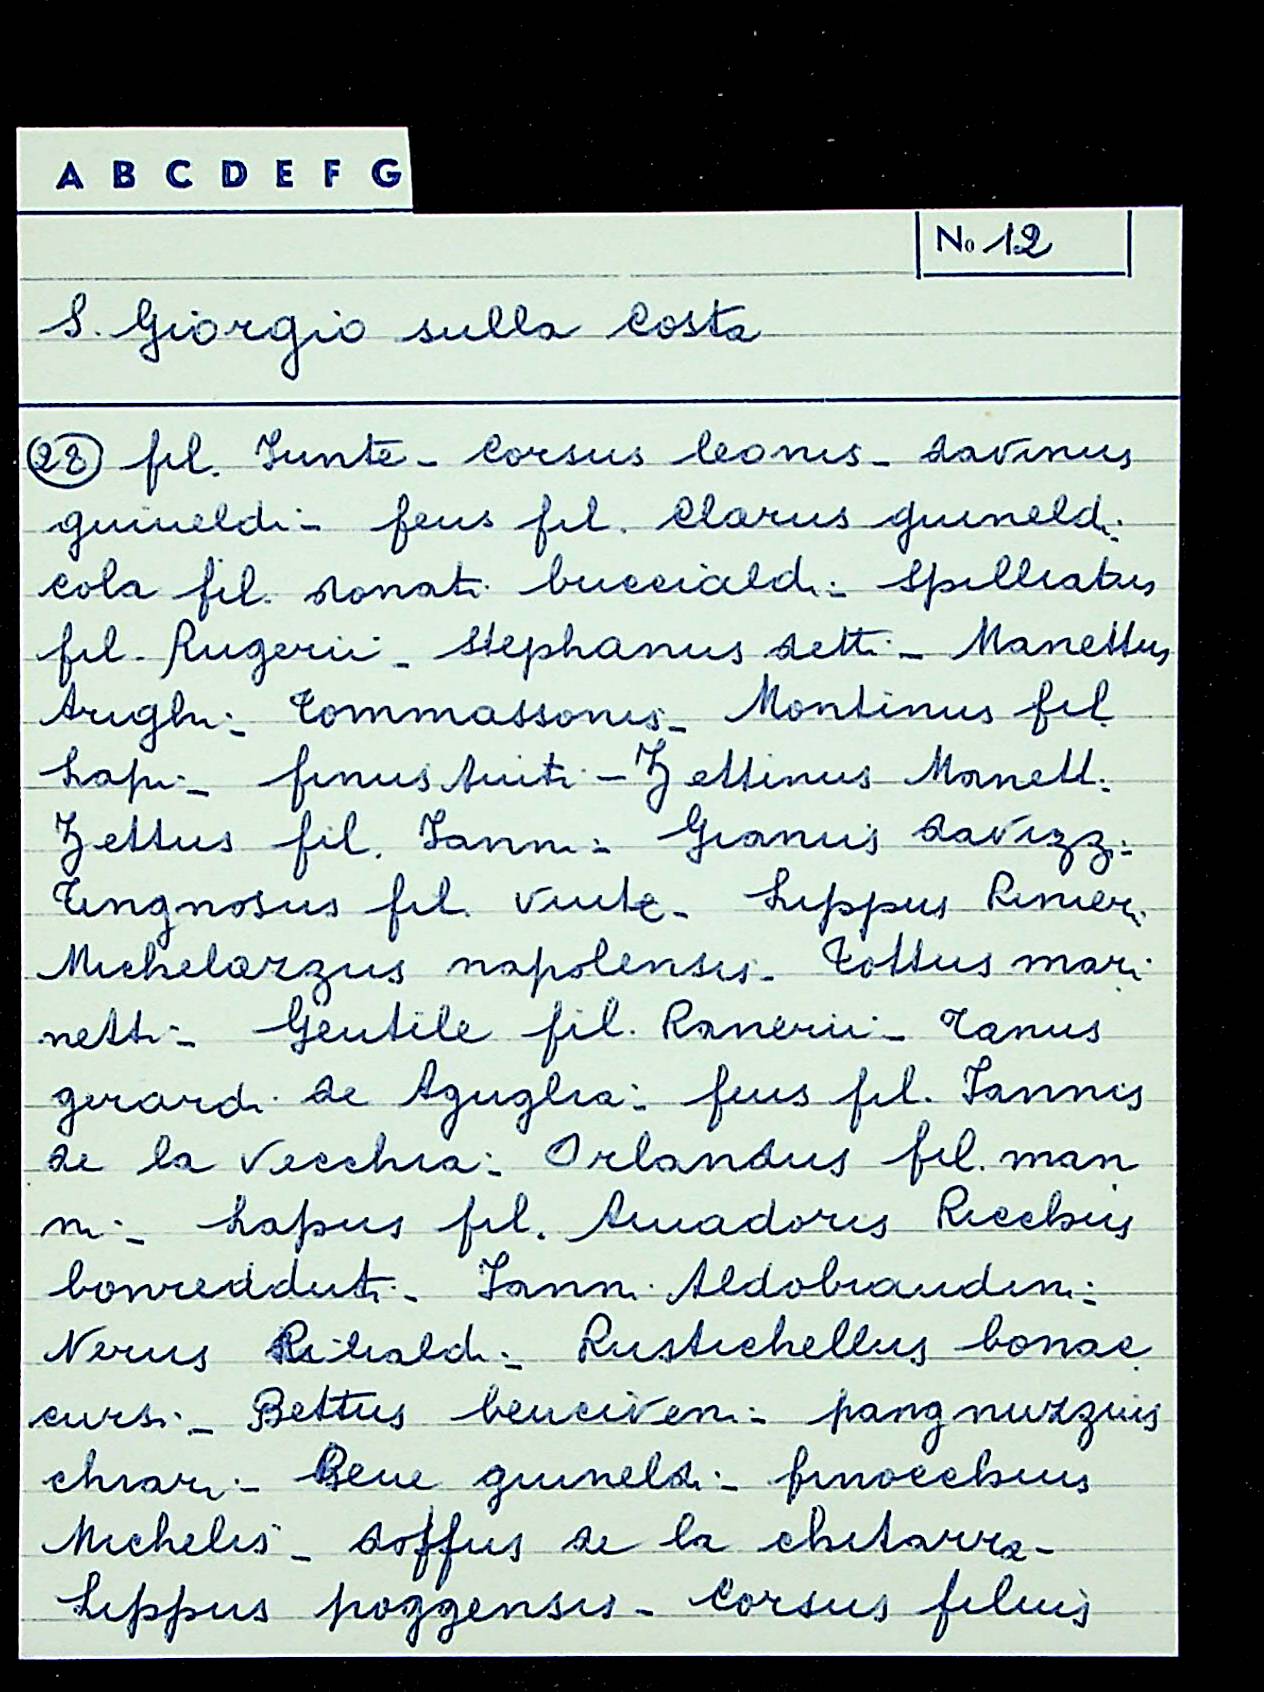 A B C D E F G
No 12
S. Giorgio sulla Costa
28 fil. Junte - Corsus leonis - davinus
guineldi - feus fil. Clarus guineldi
Cola fil. donati buccialdi - Spilliatus
fil. Rugerii - Stephanus detti - Manettus
Arighi - Tommassonis - Montinus fil
Lapi - finus Auiti - Zettinus Manetti
Zettus fil. Janni - Gianuis davizzi -
Tingnosus fil. viute - Lippus Rinieri
Michelozzus napolensis - Tottus mari
netti - Gentile fil. Ranerii - Tanus
gerardi de Aguglia - feus fil. Iannis
de la Vecchia - Orlandus fil. man
ni - Lapus fil. Amadoris Recchus
bonredduti - Janni Aldobrandini -
Nerus Ribaldi - Rustichellus bonac
cursi - Bettus benciveni - pangnuzzuis
chiari - Bene guineldi - finocchius
Michelis - doffus de la chitarra -
Lippus poggensis - Corsus filius